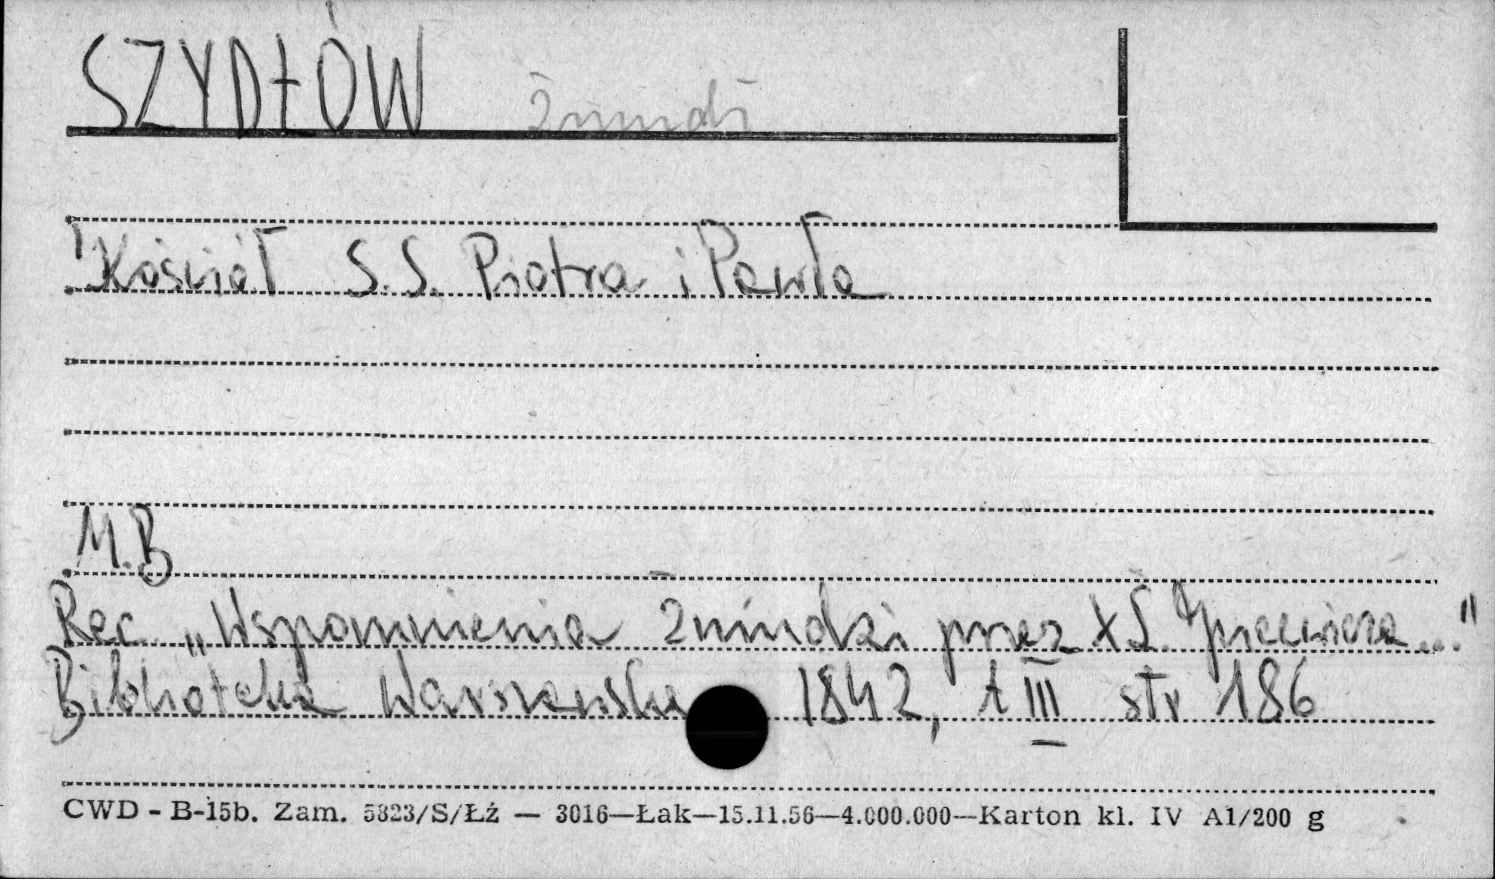 SZYDŁÓW Żmudź
Kościół S.S. Piotra i Pawła
M.B
Rec. „Wspomnienia Żmudzi przez X L. Jucewicza..."
Biblioteka Warszawska 1842, t III str 186
CWD - B-15b. Zam. 5823/S/Łź — 3016—Łak—15.11.56—4.000.000—Karton kl. IV A1/200 g